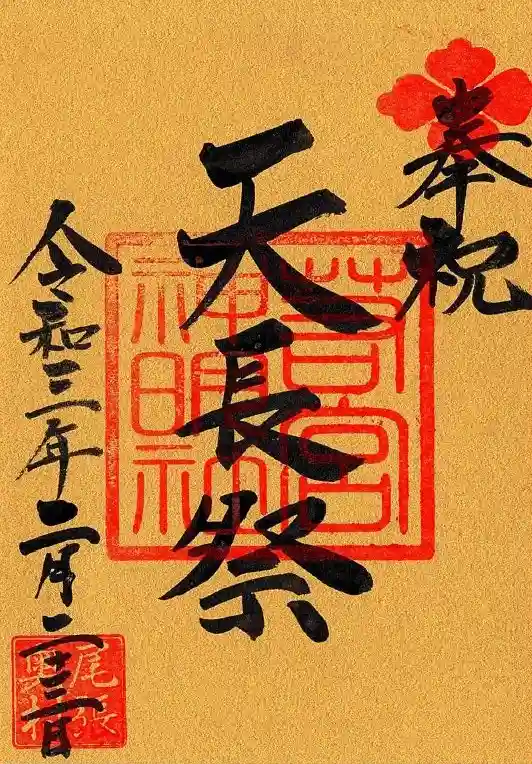 奉祝
天長祭
令和三年二月二十三日
若宮
神明社
尾張
奥村